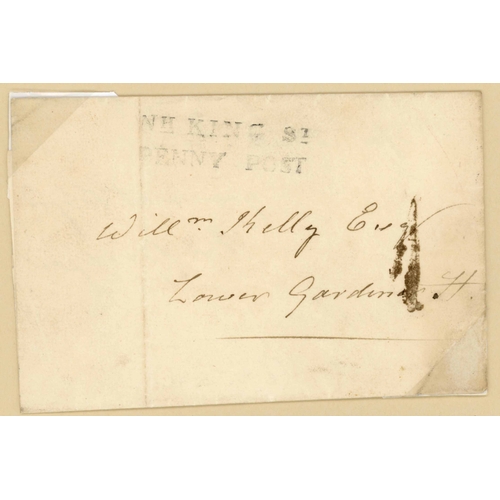 NH KING ST
PENNY POST
Willm Kelly Esqr
1
Lower Gardiner St.